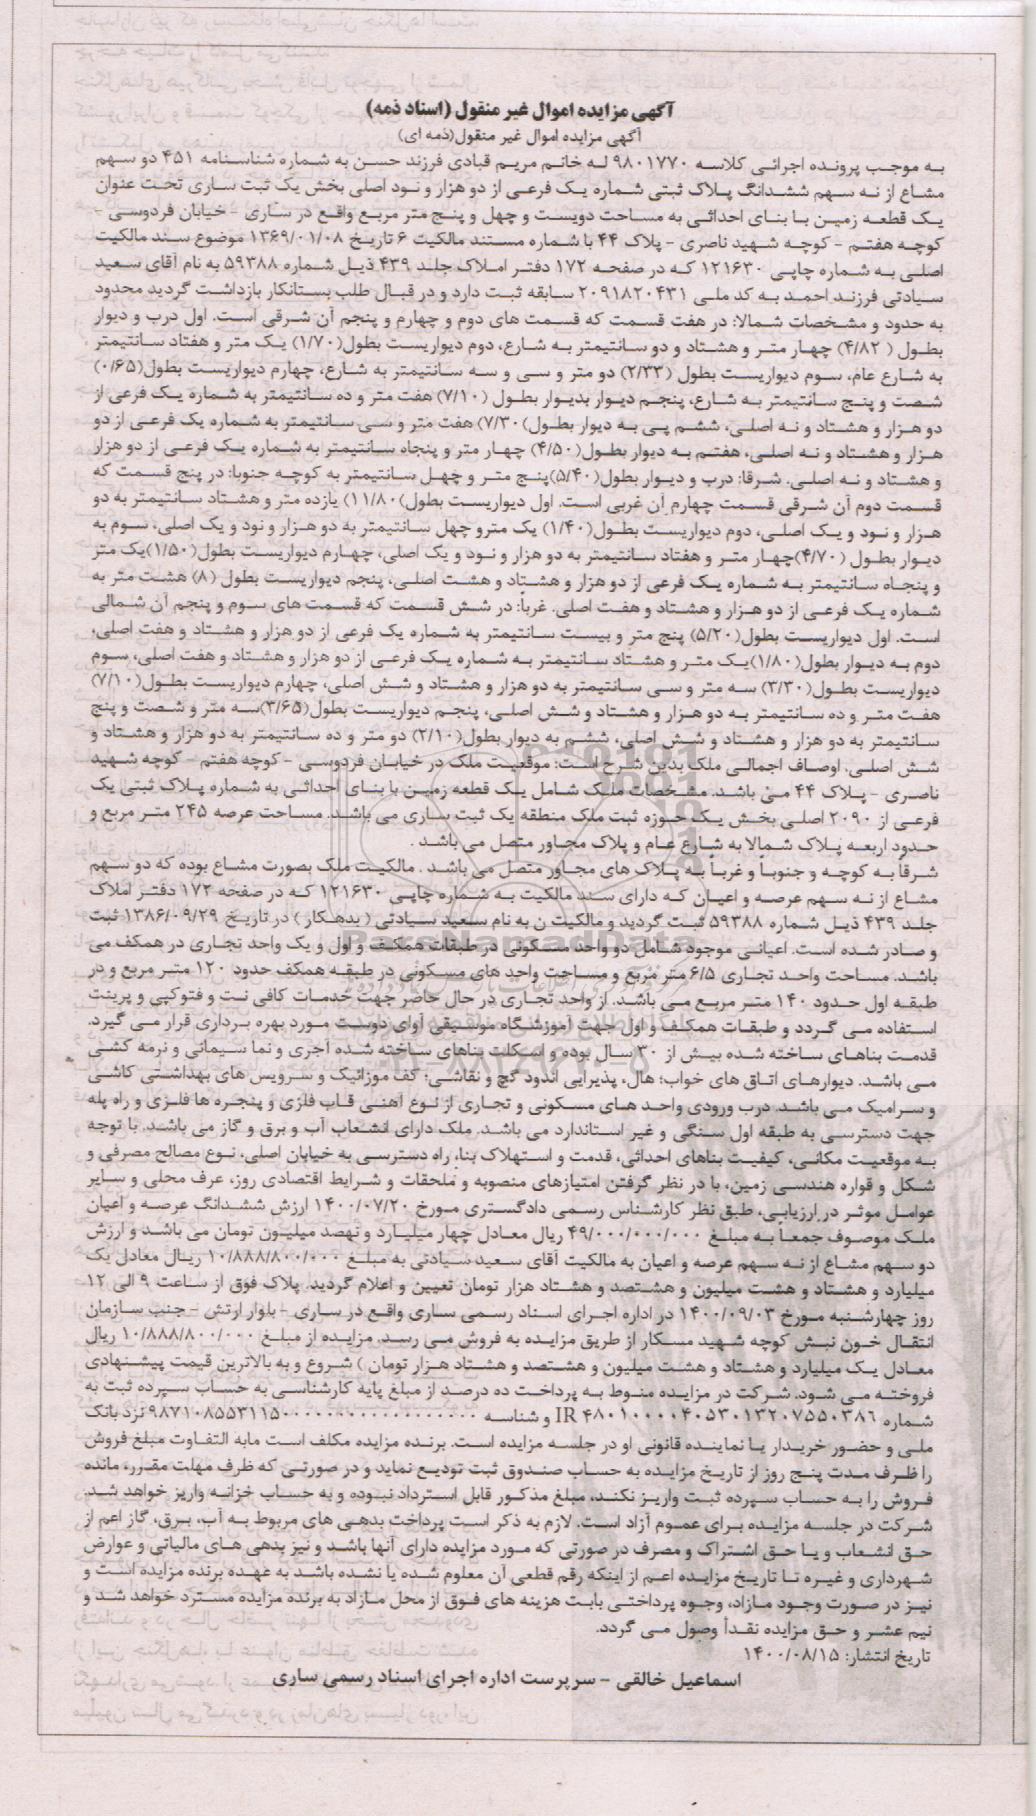 آگهی مزایده اموال غیر منقول (اسناد ذمه)
آگهی مزایده اموال غیر منقول(ذمه ای)
به موجب پرونده اجرائی کلاسه ۹۸۰۱۷۷۰ له خانم مریم قبادی فرزند حسن به شماره شناسنامه ۴۵۱ دو سهم
مشاع از نه سهم ششدانگ پلاک ثبتی شماره یک فرعی از دو هزار و نود اصلی بخش یک ثبت ساری تحت عنوان
یک قطعه زمین با بنای احداثی به مساحت دویست و چهل و پنج متر مربع واقع در ساری - خیابان فردوسی -
کوچه هفتم - کوچه شهید ناصری - پلاک ۴۴ با شماره مستند مالکیت ۶ تاریخ ۱۳۶۹/۰۱/۰۸ موضوع سند مالکیت
اصلی به شماره چاپی ۱۲۱۶۳۰ که در صفحه ۱۷۲ دفتر املاک جلد ۴۳۹ ذیل شماره ۵۹۳۸۸ به نام آقای سعید
سیادتی فرزند احمد به کد ملی ۲۰۹۱۸۲۰۴۳۱ سابقه ثبت دارد و در قبال طلب بستانکار بازداشت گردید محدود
به حدود و مشخصات شمالا: در هفت قسمت که قسمت های دوم و چهارم و پنجم آن شرقی است. اول درب و دیوار
بطول ( ۴/۸۲) چهار متر و هشتاد و دو سانتیمتر به شارع، دوم دیواریست بطول(۱/۷۰) یک متر و هفتاد سانتیمتر
به شارع عام، سوم دیواریست بطول (۲/۳۳) دو متر و سی و سه سانتیمتر به شارع، چهارم دیواریست بطول(۰/۶۵)
شصت و پنج سانتیمتر به شارع، پنجم دیوار بدیوار بطول (۷/۱۰) هفت متر و ده سانتیمتر به شماره یک فرعی از
دو هزار و هشتاد و نه اصلی، ششم پی به دیوار بطول)۷/۳۰) هفت متر و سی سانتیمتر به شماره یک فرعی از دو
هزار و هشتاد و نه اصلی، هفتم به دیوار بطول(۴/۵۰) چهار متر و پنجاه سانتیمتر به شماره یک فرعی از دو هزار
و هشتاد و نه اصلی. شرقا: درب و دیوار بطول(۵/۴۰)پنج متر و چهل سانتیمتر به کوچه جنوبا: در پنج قسمت که
قسمت دوم آن شرقی قسمت چهارم آن غربی است. اول دیواریست بطول)۱۱/۸۰) یازده متر و هشتاد سانتیمتر به دو
هزار و نود و یک اصلی، دوم دیواریست بطول(۱/۴۰) یک مترو چهل سانتیمتر به دو هزار و نود و یک اصلی، سوم به
دیوار بطول (۴/۷۰)چهار متر و هفتاد سانتیمتر به دو هزار و نود و یک اصلی، چهارم دیواریست بطول(۱/۵۰)یک متر
و پنجاه سانتیمتر به شماره یک فرعی از دو هزار و هشتاد و هشت اصلی، پنجم دیواریست بطول (۸) هشت متر به
شماره یک فرعی از دو هزار و هشتاد و هفت اصلی. غرباً: در شش قسمت که قسمت های سوم و پنجم آن شمالی
است. اول دیواریست بطول(۵/۲۰) پنج متر و بیست سانتیمتر به شماره یک فرعی از دو هزار و هشتاد و هفت اصلی،
دوم به دیوار بطول(۱/۸۰)یک متر و هشتاد سانتیمتر به شماره یک فرعی از دو هزار و هشتاد و هفت اصلی، سوم
دیواریست بطول(۳/۳۰) سه متر و سی سانتیمتر به دو هزار و هشتاد و شش اصلی، چهارم دیواریست بطول(۷/۱۰)
هفت متر و ده سانتیمتر به دو هزار و هشتاد و شش اصلی، پنجم دیواریست بطول(۳/۶۵)سه متر و شصت و پنج
سانتیمتر به دو هزار و هشتاد و شش اصلی، ششم به دیوار بطول(۲/۱۰) دو متر و ده سانتیمتر به دو هزار و هشتاد و
شش اصلی. اوصاف اجمالی ملک بدین شرح است: موقعیت ملک در خیابان فردوسی - کوچه هفتم - کوچه شهید
ناصری - پلاک ۴۴ می باشد. مشخصات ملک شامل یک قطعه زمین با بنای احداثی به شماره پلاک ثبتی یک
فرعی از ۲۰۹۰ اصلی بخش یک حوزه ثبت ملک منطقه یک ثبت ساری می باشد. مساحت عرصه ۲۴۵ متر مربع و
حدود اربعه پلاک شمالا به شارع عام و پلاک مجاور متصل می باشد .
شرقاً به کوچه و جنوباً و غرباً به پلاک های مجاور متصل می باشد . مالکیت ملک بصورت مشاع بوده که دو سهم
مشاع از نه سهم عرصه و اعیان که دارای سند مالکیت به شماره چاپی ۱۲۱۶۳۰ که در صفحه ۱۷۲ دفتر املاک
جلد ۴۳۹ ذیل شماره ۵۹۳۸۸ ثبت گردید و مالکیت ن به نام سعید سیادتی ( بدهکار ) در تاریخ ۱۳۸۶/۰۹/۲۹ ثبت
و صادر شده است. اعیانی موجود شامل دو واحد مسکونی در طبقات همکف و اول و یک واحد تجاری در همکف می
باشد. مساحت واحد تجاری ۶/۵ متر مربع و مساحت واحد های مسکونی در طبقه همکف حدود ۱۲۰ متر مربع و در
طبقه اول حدود ۱۴۰ متر مربع می باشد. از واحد تجاری در حال حاضر جهت خدمات کافی نت و فتوکپی و پرینت
استفاده می گردد و طبقات همکف و اول جهت آموزشگاه موسیقی آوای دوست مورد بهره برداری قرار می گیرد.
قدمت بناهای ساخته شده بیش از ۳۰ سال بوده و اسکلت بناهای ساخته شده آجری و نما سیمانی و نرمه کشی
می باشد. دیوارهای اتاق های خواب؛ هال، پذیرایی اندود گچ و نقاشی؛ کف موزائیک و سرویس های بهداشتی کاشی
و سرامیک می باشد. درب ورودی واحد های مسکونی و تجاری از نوع آهنی قاب فلزی و پنجره ها فلزی و راه پله
جهت دسترسی به طبقه اول سنگی و غیر استاندارد می باشد. ملک دارای انشعاب آب و برق و گاز می باشد. با توجه
به موقعیت مکانی، کیفیت بناهای احداثی، قدمت و استهلاک بنا، راه دسترسی به خیابان اصلی، نوع مصالح مصرفی و
شکل و قواره هندسی زمین، با در نظر گرفتن امتیازهای منصوبه و ملحقات و شرایط اقتصادی روز، عرف محلی و سایر
عوامل موثر در ارزیابی، طبق نظر کارشناس رسمی دادگستری مورخ ۱۴۰۰/۰۷/۲۰ ارزش ششدانگ عرصه و اعیان
ملک موصوف جمعاً به مبلغ ۴۹/۰۰۰/۰۰۰/۰۰۰ ریال معادل چهار میلیارد و نهصد میلیون تومان می باشد و ارزش
دو سهم مشاع از نه سهم عرصه و اعیان به مالکیت آقای سعید سیادتی به مبلغ ۱۰/۸۸۸/۸۰۰/۰۰۰ ریال معادل یک
میلیارد و هشتاد و هشت میلیون و هشتصد و هشتاد هزار تومان تعیین و اعلام گردید. پلاک فوق از ساعت ۹ الی ۱۲
روز چهارشنبه مورخ ۱۴۰۰/۰۹/۰۳ در اداره اجرای اسناد رسمی ساری واقع در ساری - بلوار ارتش - جنب سازمان
انتقال خون نبش کوچه شهید مسکار از طریق مزایده به فروش می رسد. مزایده از مبلغ ۱۰/۸۸۸/۸۰۰/۰۰۰ ریال
معادل یک میلیارد و هشتاد و هشت میلیون و هشتصد و هشتاد هزار تومان ) شروع و به بالاترین قیمت پیشنهادی
فروخته می شود. شرکت در مزایده منوط به پرداخت ده درصد از مبلغ پایه کارشناسی به حساب سپرده ثبت به
شماره IR ۴۸۰۱۰۰۰۰۴۰۵۳۰۱۳۲۰۷۵۵۰۳۸۶ و شناسه نزد بانک
ملی و حضور خریدار یا نماینده قانونی او در جلسه مزایده است. برنده مزایده مکلف است مابه التفاوت مبلغ فروش
را ظرف مدت پنج روز از تاریخ مزایده به حساب صندوق ثبت تودیع نماید و در صورتی که ظرف مهلت مقرر، مانده
فروش را به حساب سپرده ثبت واریز نکند، مبلغ مذکور قابل استرداد نبوده و به حساب خزانه واریز خواهد شد.
شرکت در جلسه مزایده برای عموم آزاد است. لازم به ذکر است پرداخت بدهی های مربوط به آب، برق، گاز اعم از
حق انشعاب و یا حق اشتراک و مصرف در صورتی که مورد مزایده دارای آنها باشد و نیز بدهی های مالیاتی و عوارض
شهرداری و غیره تا تاریخ مزایده اعم از اینکه رقم قطعی آن معلوم شده یا نشده باشد به عهده برنده مزایده است و
نیز در صورت وجود مازاد، وجوه پرداختی بابت هزینه های فوق از محل مازاد به برنده مزایده مسترد خواهد شد و
نیم عشر و حق مزایده نقداً وصول می گردد.
تاریخ انتشار: ۱۴۰۰/۰۸/۱۵
اسماعیل خالقی - سرپرست اداره اجرای اسناد رسمی ساری